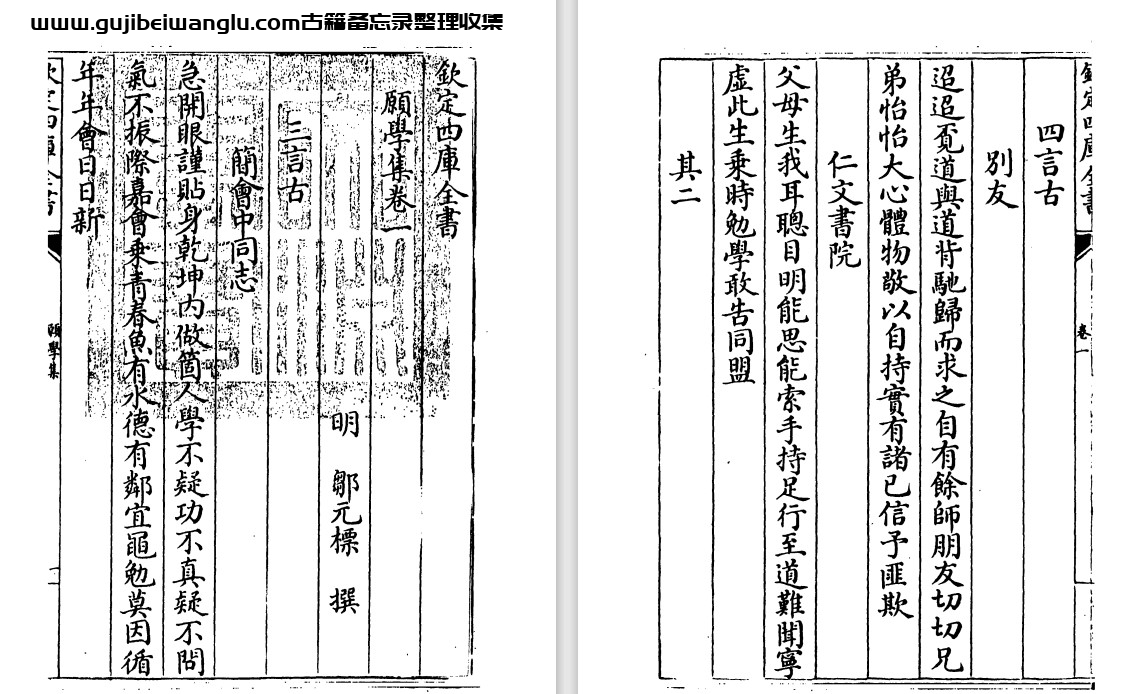 www.gujibeiwanglu.com古籍备忘录整理收集
欽定四庫全書
願學集卷一
明 鄒元標 撰
三言古
簡會中同志
急開眼謹貼身乾坤内做箇人學不疑功不真疑不問
氣不振際嘉會乘青春魚有水德有鄰宜黽勉莫因循
年年會日日新
欽定四庫全書
願學集
一
欽定四庫全書
卷一
四言古
別友
迢迢覔道與道背馳歸而求之自有餘師朋友切切兄
弟怡怡大心體物敬以自持實有諸已信予匪欺
仁文書院
父母生我耳聰目明能思能索手持足行至道難聞寧
虛此生乘時勉學敢告同盟
其二